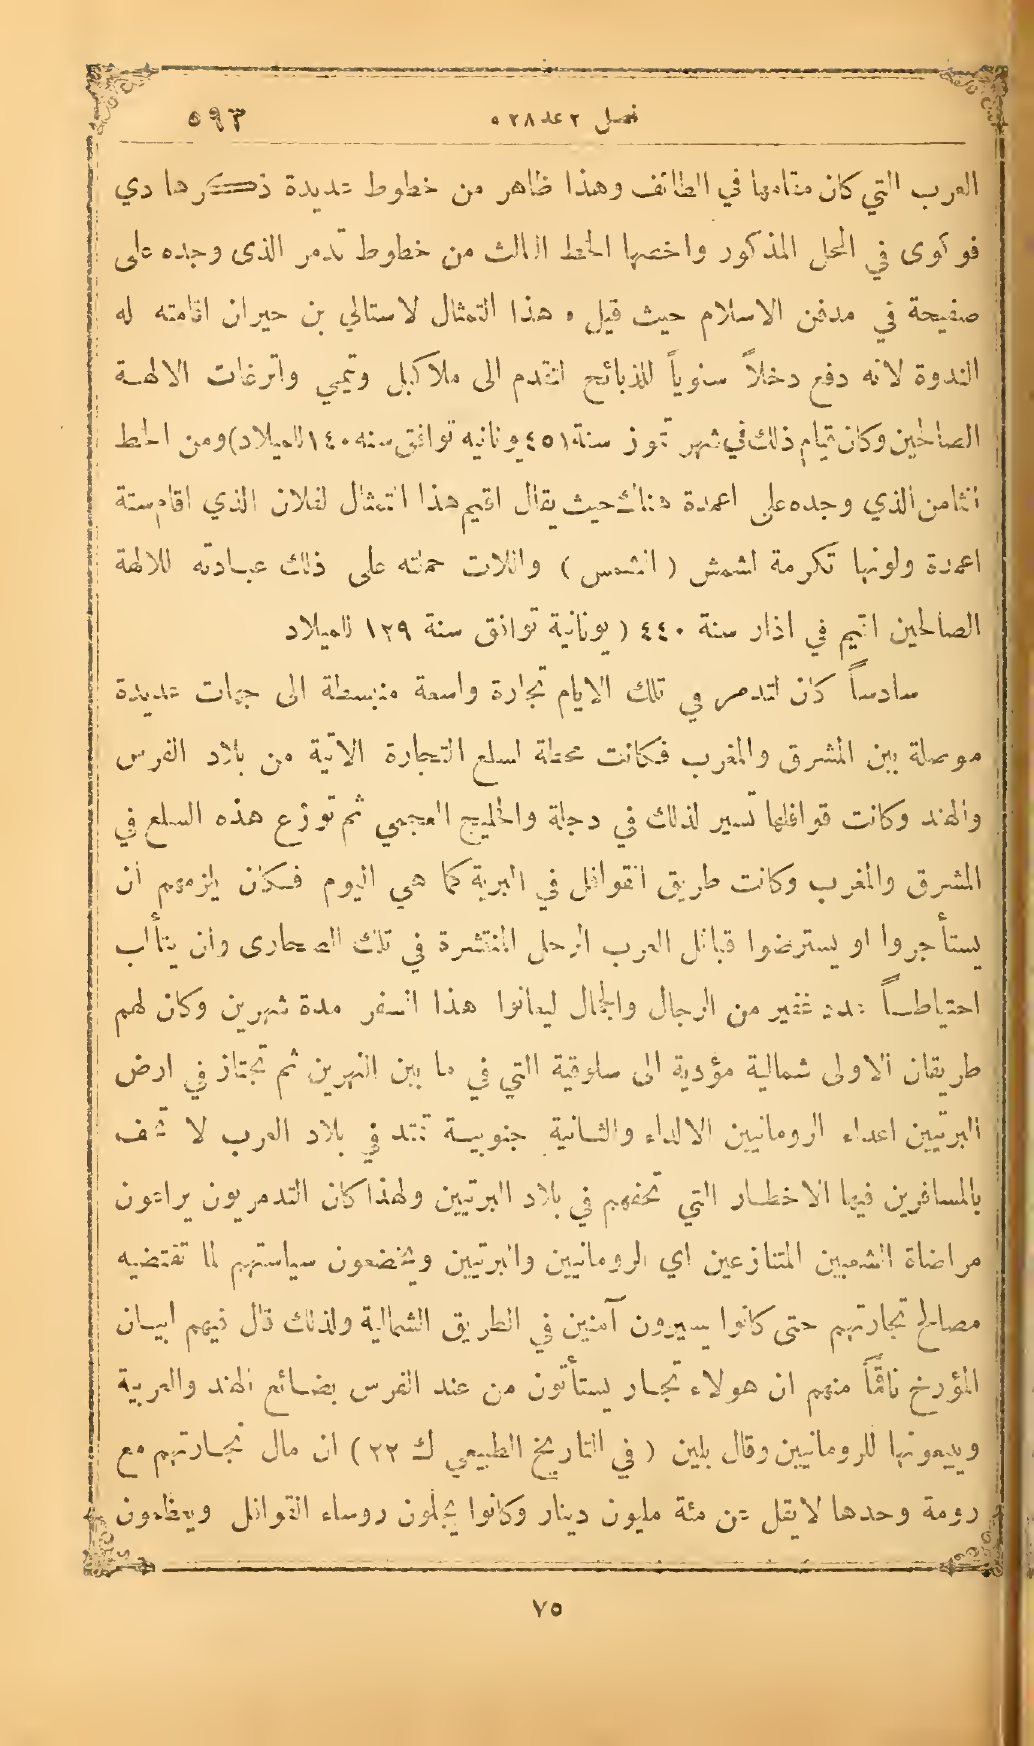 فصل ٢ عد ٥٢٨ ٥٩٣
العرب التي كان مقامها في الطائف وهذا ظاهر من خطوط عديدة ذكرها دي
فوكوى في المحل المذكور واخصها الخط الثالث من خطوط تدمر الذى وجده على
صفيحة في مدفن الاسلام حيث قيل ٠ هذا التمثال لاستالي بن حيران اقامته له
الندوة لانه دفع دخلاً سنوياً للذبائح لتقدم الى ملاكبل وتيمي واترغات الالهة
الصالحين وكان تمام ذلك في شهر تموز سنة ٤٥١ يونانيه توافق سنه ١٤٠ للميلاد) ومن الخط
الثامن الذي وجده على اعمدة هناك حيث يقال اقيم هذا التمثال لفلان الذي اقام ستة
اعمدة ولونها تكرمة لشمش ( الشمس ) واللات حملته على ذلك عبادته للالهة
الصالحين اقيم في اذار سنة ٤٤٠ ( يونانية توافق سنة ١٢٩ للميلاد
سادساً كان لتدمر في تلك الايام تجارة واسعة منبسطة الى جهات عديدة
موصلة بين المشرق والمغرب فكانت محطة لسلع التجارة الاتية من بلاد الفرس
والهند وكانت قوافلها تسير لذلك في دجلة والخليج العجمي ثم توزع هذه السلع في
المشرق والمغرب وكانت طريق القوافل في البرية كما هي اليوم فكان يلزمهم ان
يستأجروا او يسترضوا قبائل العرب الرحل المنتشرة في تلك الصحارى وان يتألب
احتياطاً عدد غفير من الرجال والجمال ليعانوا هذا السفر مدة شهرين وكان لهم
طريقان الاولى شمالية مؤدية الى سلوقية التي في ما بين النهرين ثم تجتاز في ارض
البرتيين اعداء الرومانيين الالداء والثانية جنوبية تمتد في بلاد العرب لا تحف
بالمسافرين فيها الاخطار التي تحفهم في بلاد البرتيين ولهذا كان التدمريون يراعون
مراضاة الشعبين المتنازعين اي الرومانيين والبرتيين ويخضعون سياستهم لما تقتضيه
مصالح تجارتهم حتى كانوا يسيرون آمنين في الطريق الشمالية ولذلك قال فيهم ابيان
المؤرخ ناقماً منهم ان هولاء تجار يستأتون من عند الفرس بضائع الهند والعربية
ويبيعونها للرومانيين وقال بلين ( في التاريخ الطبيعي ك ٢٢ ) ان مال تجارتهم مع
رومة وحدها لا يقل عن مئة مليون دينار وكانوا يجلون روساء القوافل ويعظمون
٧٥